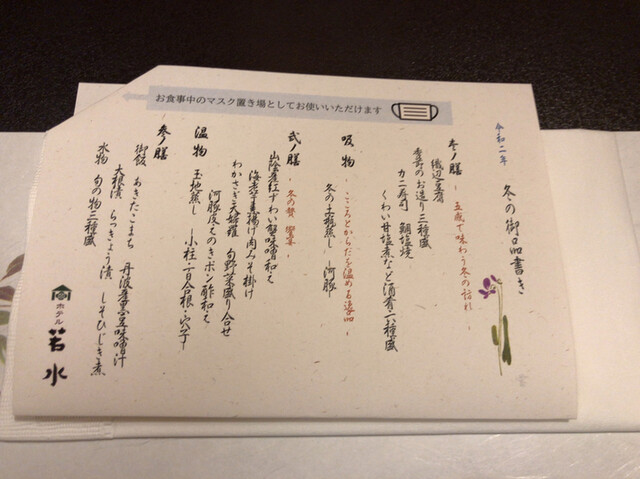 お食事中のマスク置き場としてお使いいただけます
令和二年
冬の御品書き
壱ノ膳 - 五感で味わう冬の訪れ -
磯辺豆腐
季節のお造り三種盛
カニ寿司 鯛塩焼
くわい甘塩煮など酒肴六種盛
吸物 - こころとからだを温める逸品 -
冬の土瓶蒸し ―河豚―
弐ノ膳 - 冬の贅 饗宴 -
山陰産紅ずわい蟹味噌和え
海老芋唐揚げ肉みそ掛け
わかさぎ天婦羅 旬野菜盛り合せ
河豚皮えのきポン酢和え
温物 玉地蒸し ―小柱 百合根・穴子―
参ノ膳
御飯 あきたこまち 丹波産黒豆味噌汁
大根漬 らっきょう漬 しそひじき煮
水物 旬の物三種盛
ホテル
若水